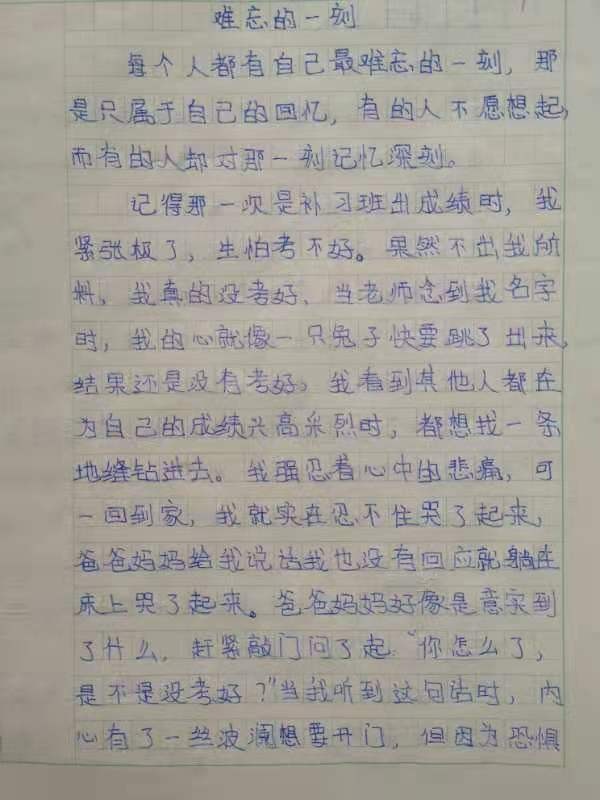 难忘的一刻
每个人都有自己最难忘的一刻，那
是只属于自己的回忆，有的人不愿想起，
而有的人却对那一刻记忆深刻。
记得那一次是补习班出成绩时，我
紧张极了，生怕考不好。果然不出我所
料，我真的没考好，当老师念到我名字
时，我的心就像一只兔子快要跳了出来，
结果还是没有考好，我看到其他人都在
为自己的成绩兴高采烈时，都想找一条
地缝钻进去。我强忍着心中的悲痛，可
一回到家，我就实在忍不住哭了起来，
爸爸妈妈给我说话我也没有回应就躺在
床上哭了起来。爸爸妈妈好像是意实到
了什么，赶紧敲门问了起“你怎么了，
是不是没考好？”当我听到这句话时，内
心有了一丝波澜想要开门，但因为恐惧